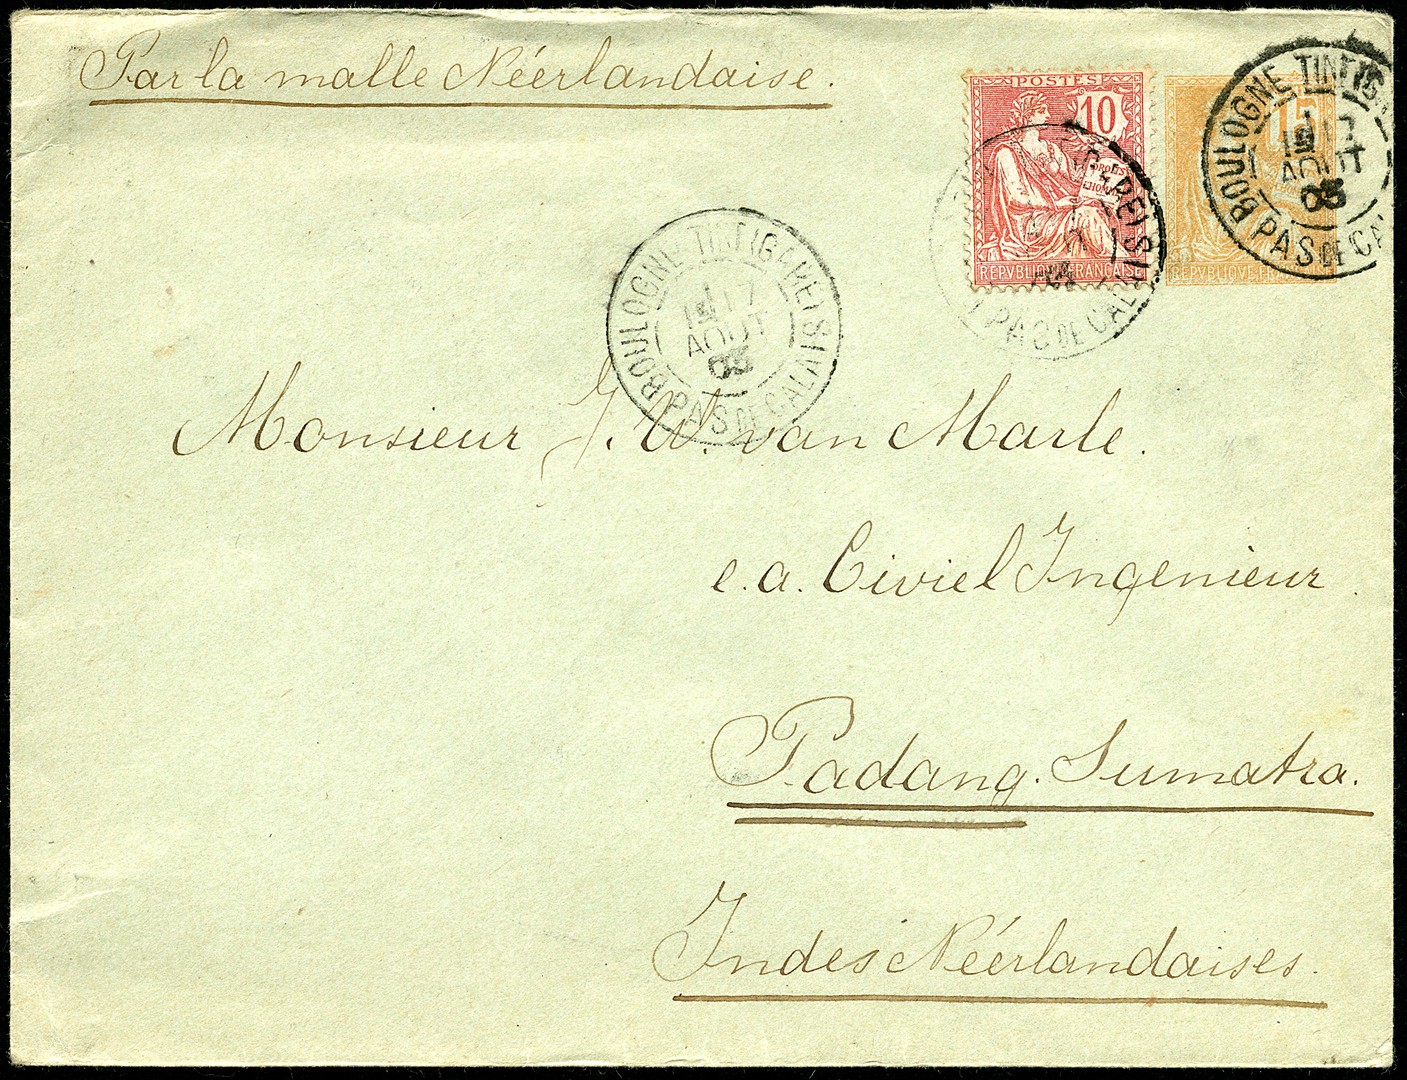 Par la malle Néerlandaise.
POSTES
10
DROITS
DE
L'HOMME
REPVBLIQVE FRANÇAISE
15
REPVBLIQVE FRA
BOULOGNE TINTIG
AOUT
PAS DE CA
BOULOGNE TINTIGARE ISI
AOUT
PAS DE CALAIS
PAS DE CAL
Monsieur J. W. van Marle.
e.a. Civiel Ingenieur
Padang. Sumatra.
Indes Néérlandaises.